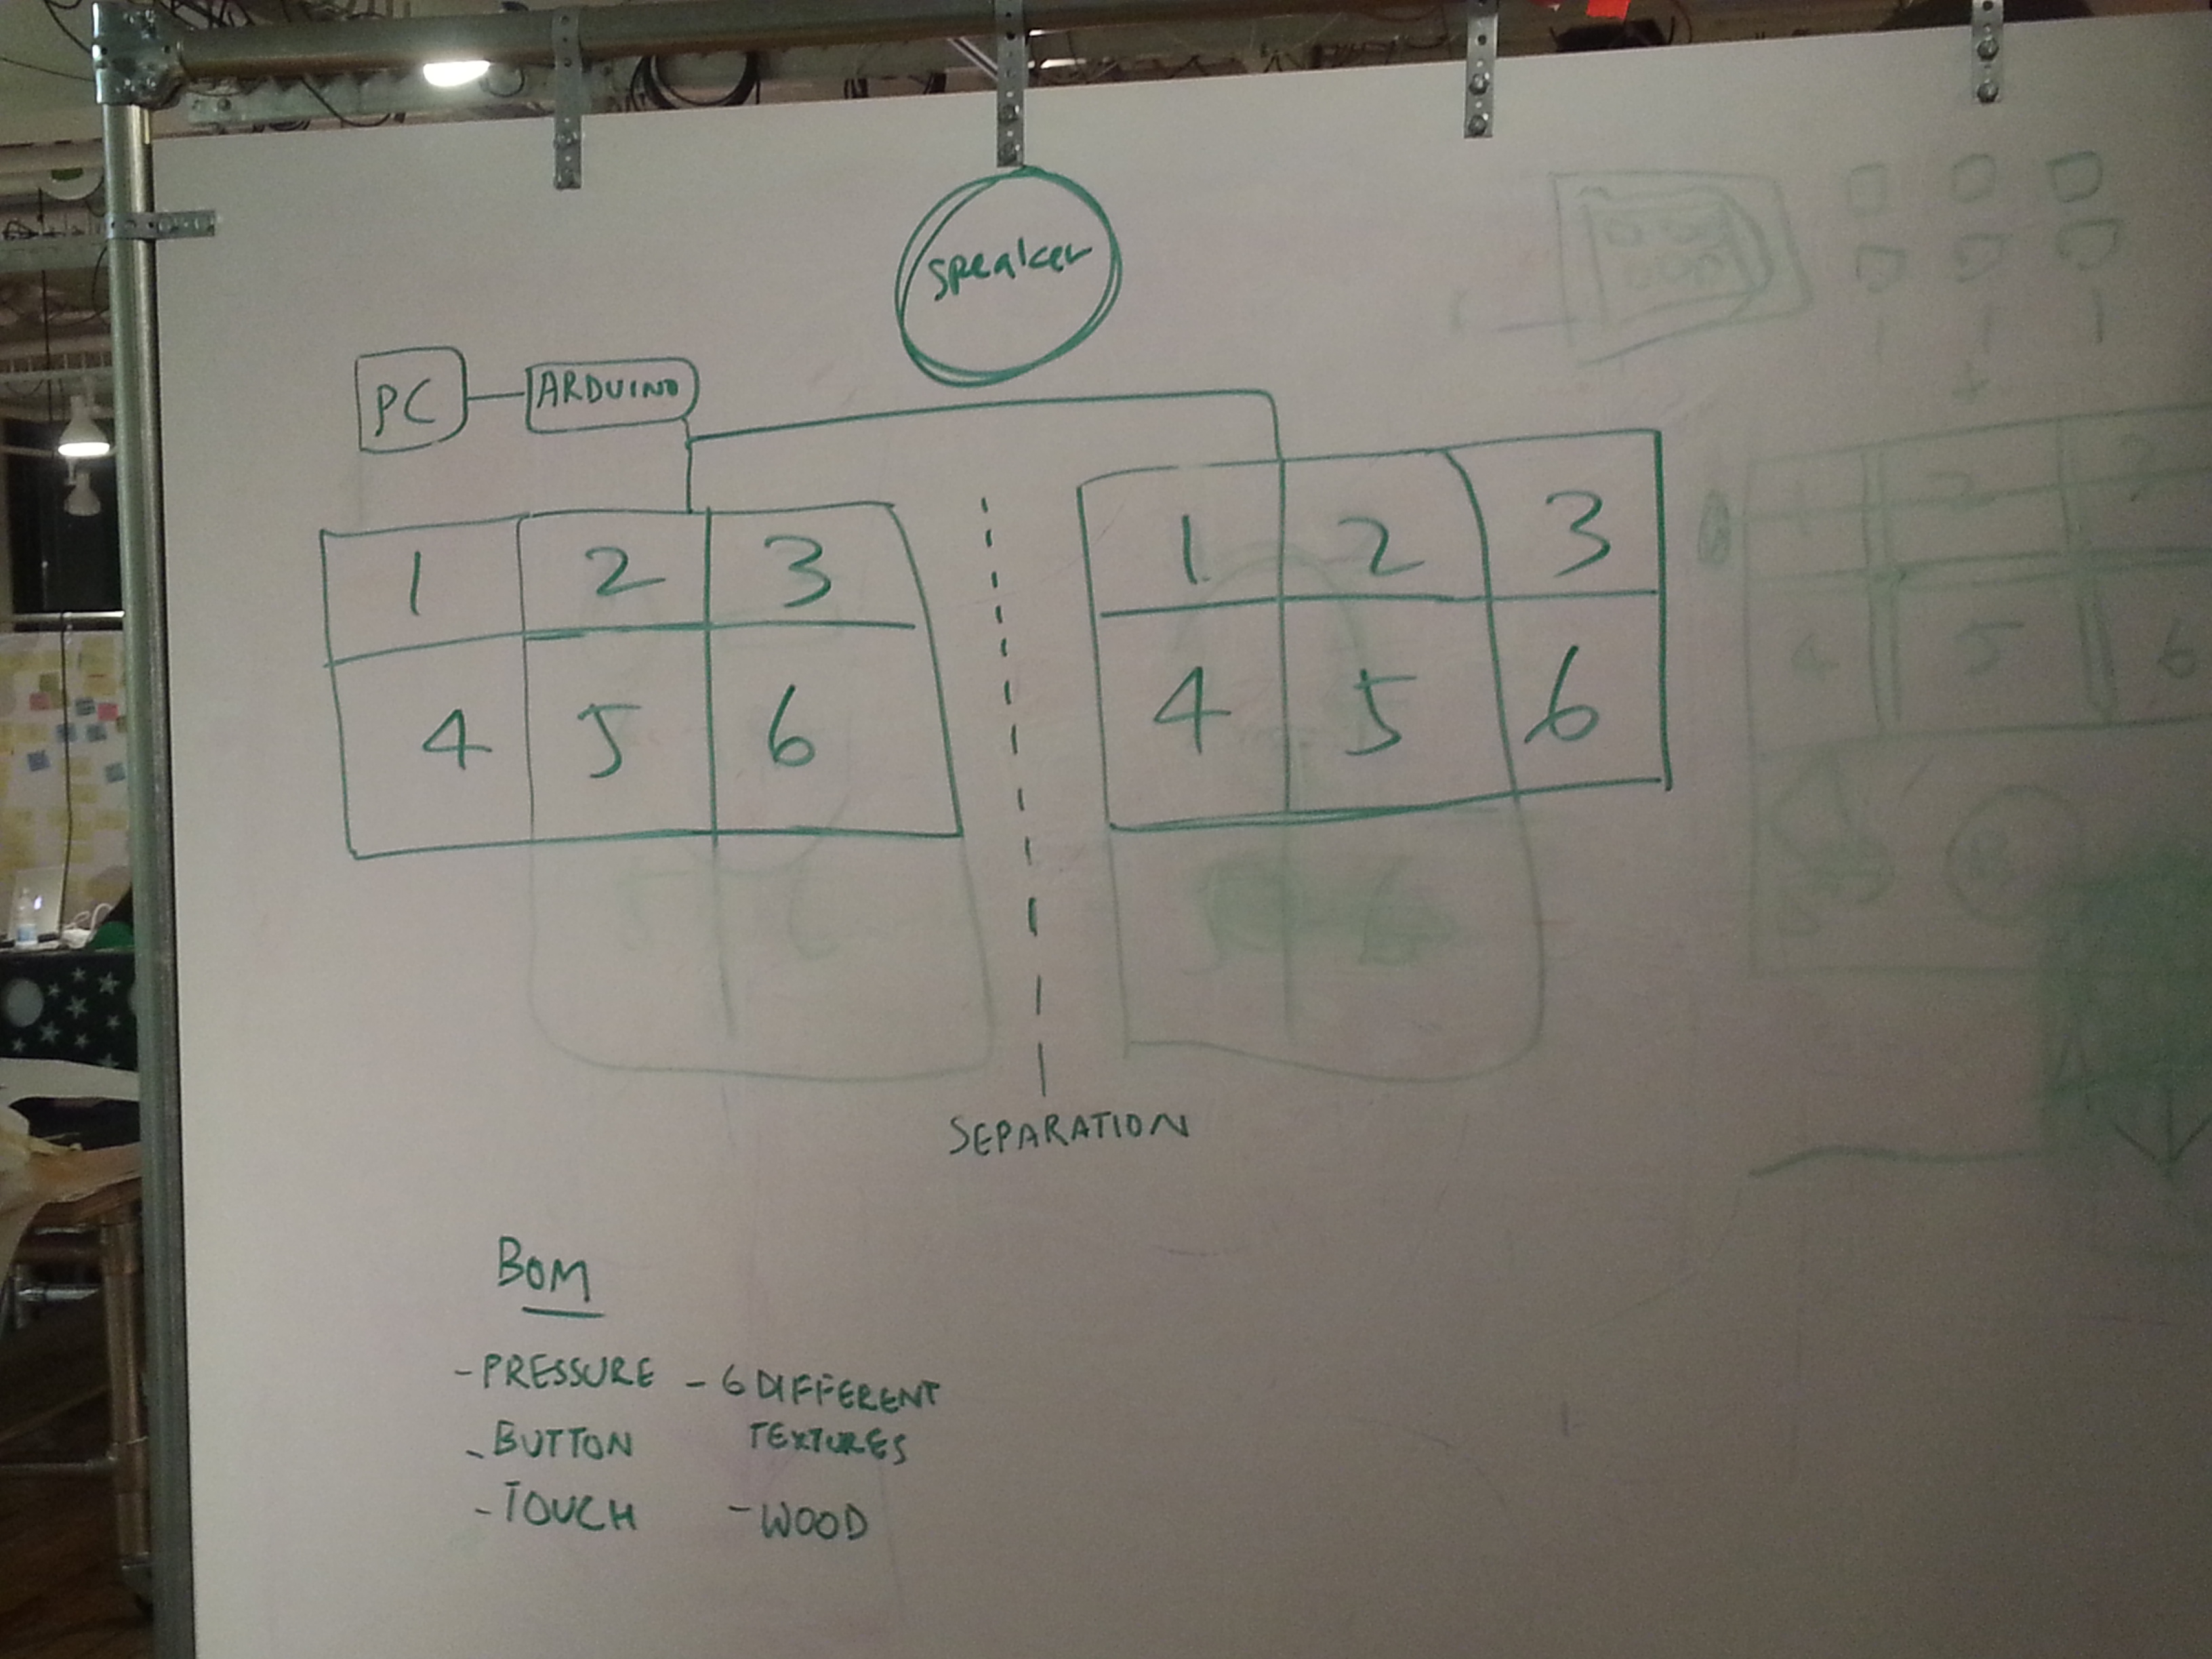 speaker
PC
ARDUINO
1 2 3
4 5 6
1 2 3
4 5 6
SEPARATION
BOM
- PRESSURE
- BUTTON
- TOUCH
- 6 DIFFERENT
TEXTURES
- WOOD
4 5 6